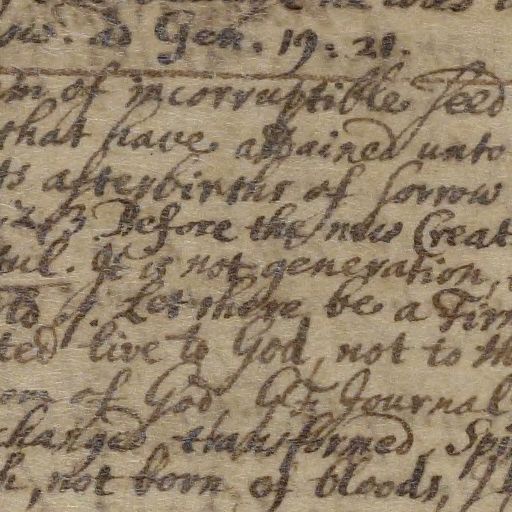 ad Gen. 19: 21.
of incorruptible seed
that have attained unto
afterbirths of sorrow
Before the new Creat
It is not generation,
of. Let there be a Firm
ted live to God, not to
of God Journal
changed, transformed, Spi
h, not born of bloods,